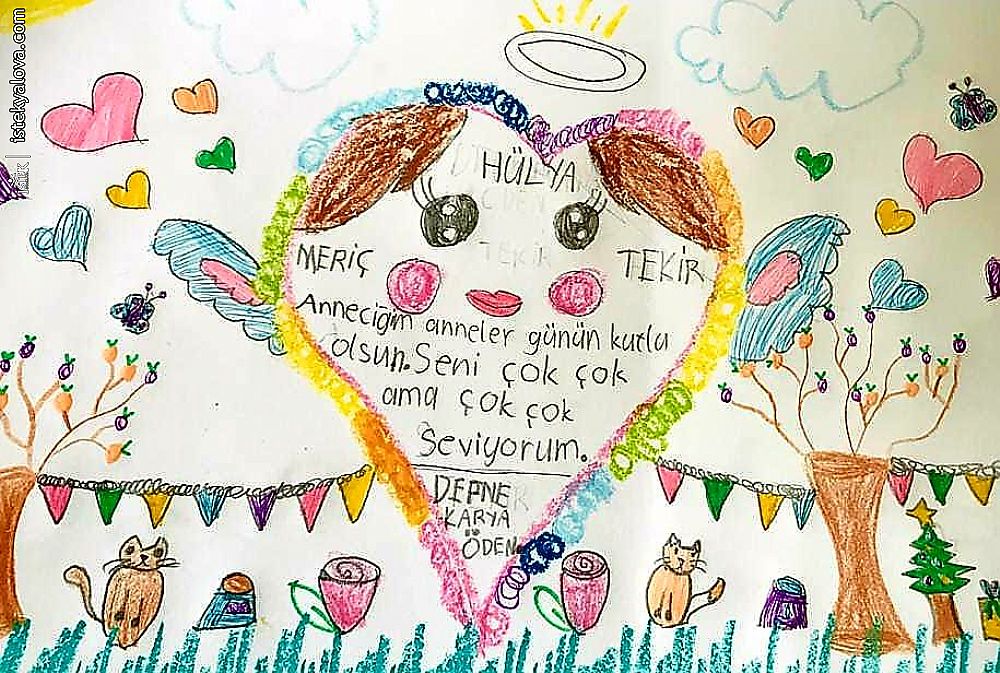 istekyalova.com
HÜLYA
MERİÇ TEKİR
Anneciğim anneler günün kutlu
olsun. Seni çok çok
ama çok çok
Seviyorum.
DEFNE
KARYA
ÖDEN